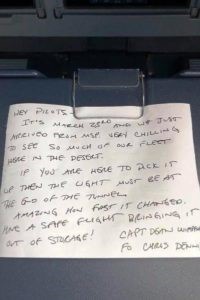 HEY PILOTS -
IT'S MARCH 23RD AND WE JUST
ARRIVED FROM MSP. VERY CHILLING
TO SEE SO MUCH OF OUR FLEET
HERE IN THE DESERT.
IF YOU ARE HERE TO PICK IT
UP THEN THE LIGHT MUST BE AT
THE END OF THE TUNNEL.
AMAZING HOW FAST IT CHANGED.
HAVE A SAFE FLIGHT BRINGING IT
OUT OF STORAGE!
CAPT
FO CHRIS